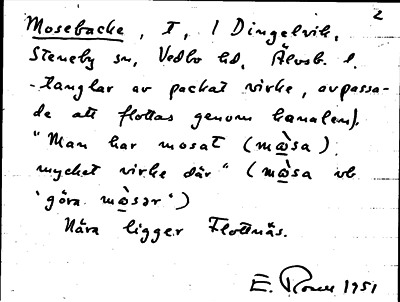 2
Mosebacke, T, l Dingelvik,
Steneby sn, Vedbo hd, Älvsb. l.
-tanglar av packat virke, avpassa-
de att flottas genom kanalen).
"Man har mosat (mɷ̀sa)
mycket virke där" (mɷ̀sa vb
'göra mɷ̀sər')
Nära ligger Flottnäs.
E. 1951